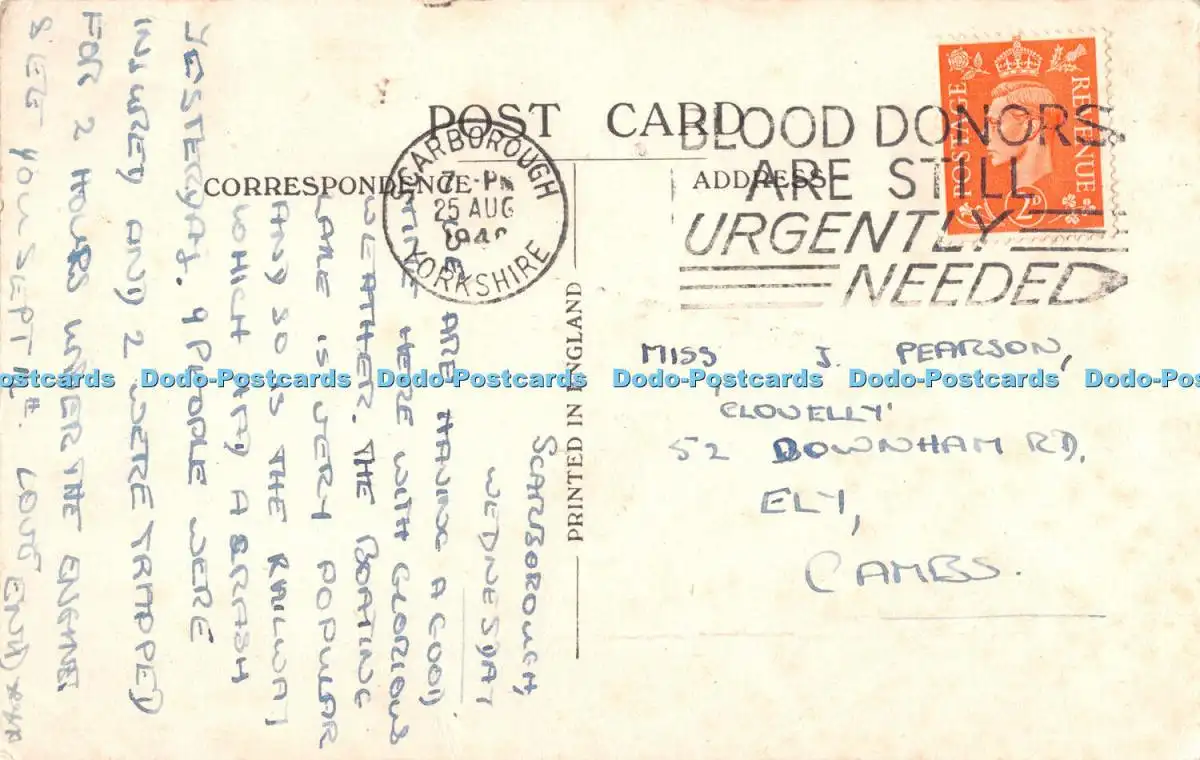 POST CARD
CORRESPONDENCE
ADDRESS
PRINTED IN ENGLAND
SCARBOROUGH
7 - PM
25 AUG
194
YORKSHIRE
BLOOD DONORS
ARE STILL
URGENTLY
NEEDED
POSTAGE
REVENUE
2D
MISS J. PEARSON,
'CLOVELLY'
52 DOWNHAM RD,
ELY,
CAMBS.
SCARBOROUGH,
WEDNESDAY
WE ARE HAVING A GOOD
TIME HERE WITH GLORIOUS
WEATHER. THE BOATING
LAKE IS VERY POPULAR
AND SO IS THE RAILWAY
WHICH HAD A CRASH
YESTERDAY. 9 PEOPLE WERE
INJURED AND 2 WERE TRAPPED
FOR 2 HOURS UNDER THE ENGINE.
SEE YOU SEPT 11TH. LOVE ENID xxx
Dodo-Postcards Dodo-Postcards Dodo-Postcards Dodo-Postcards Dodo-Postcards